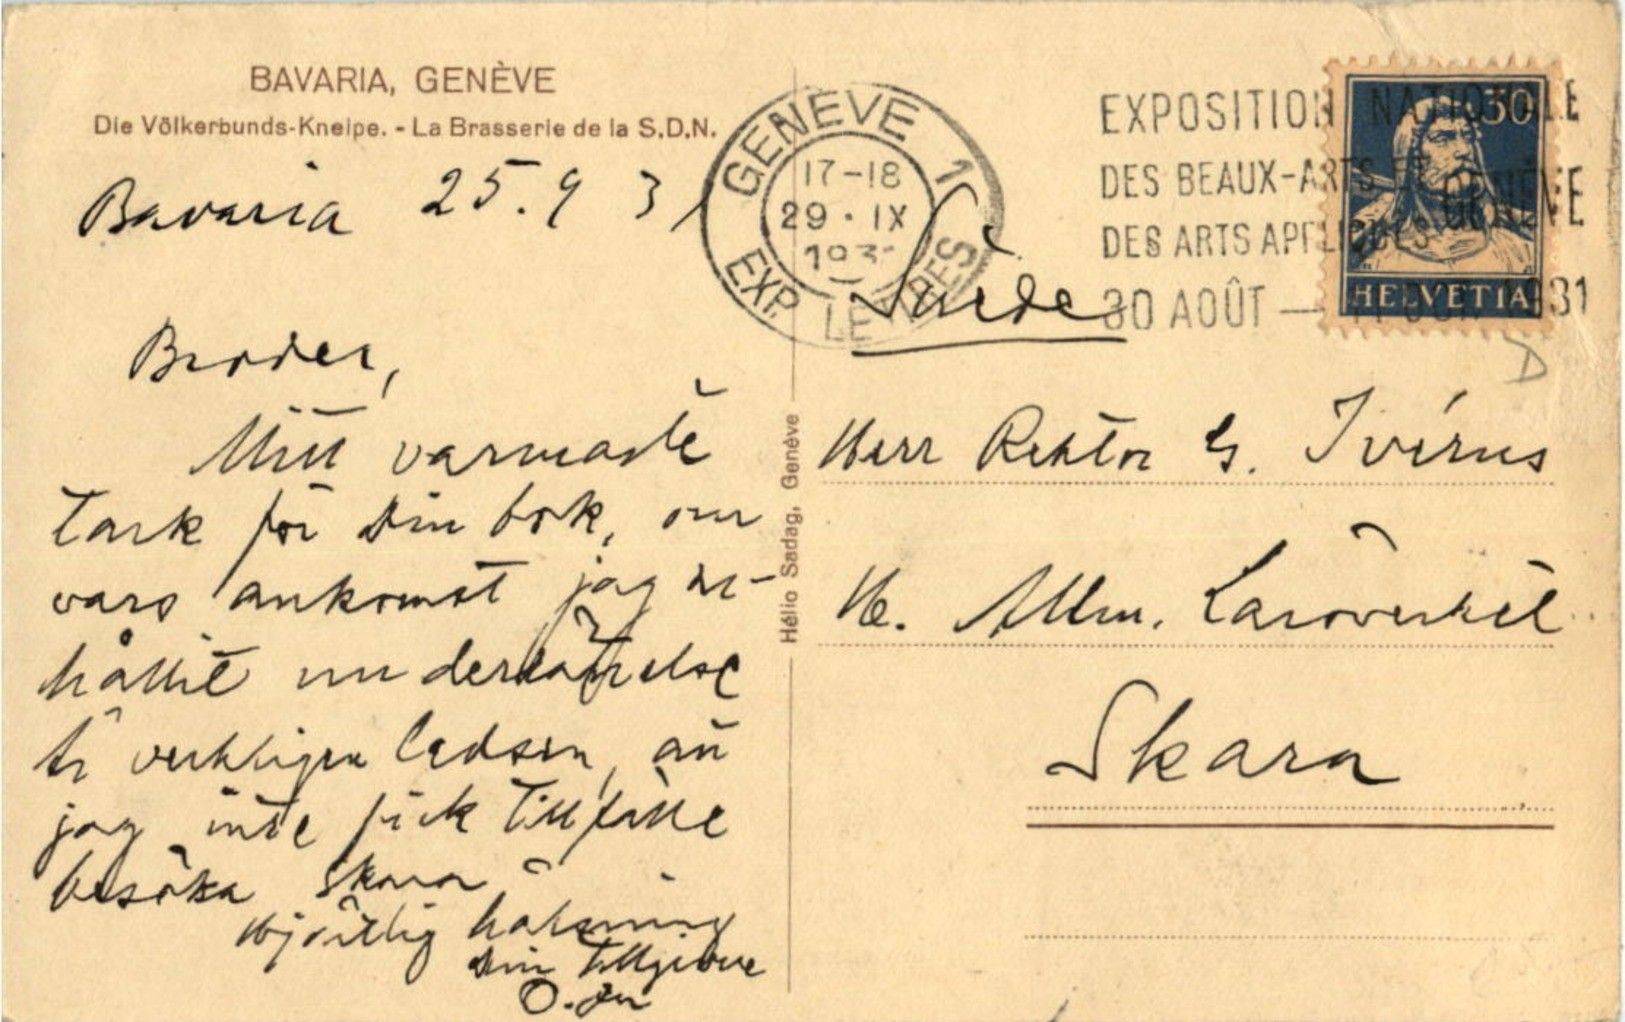 BAVARIA, GENÈVE
Die Völkerbunds-Kneipe. - La Brasserie de la S.D.N.
Bavaria 25.9 31
Broder,
Mitt varmaste
tack för Din bok, om
vars ankomst jag er-
hållit underrättelse
är verkligen ledsen, att
jag inte fick tillfälle
besöka Skara
Hjärtlig hälsning
Din tillgivne
Hélio Sadag, Genève
GENÈVE 1
17-18
29·IX
EXP. LETTRES
EXPOSITION NATIONALE
DES BEAUX-ARTS ET
DES ARTS APPLIQUÉS GENÈVE
30 AOÛT — OCT. 1931
30
HELVETIA
Suède
Herr Rektor G. Ivérus
H. Allm. Läroverket
Skara